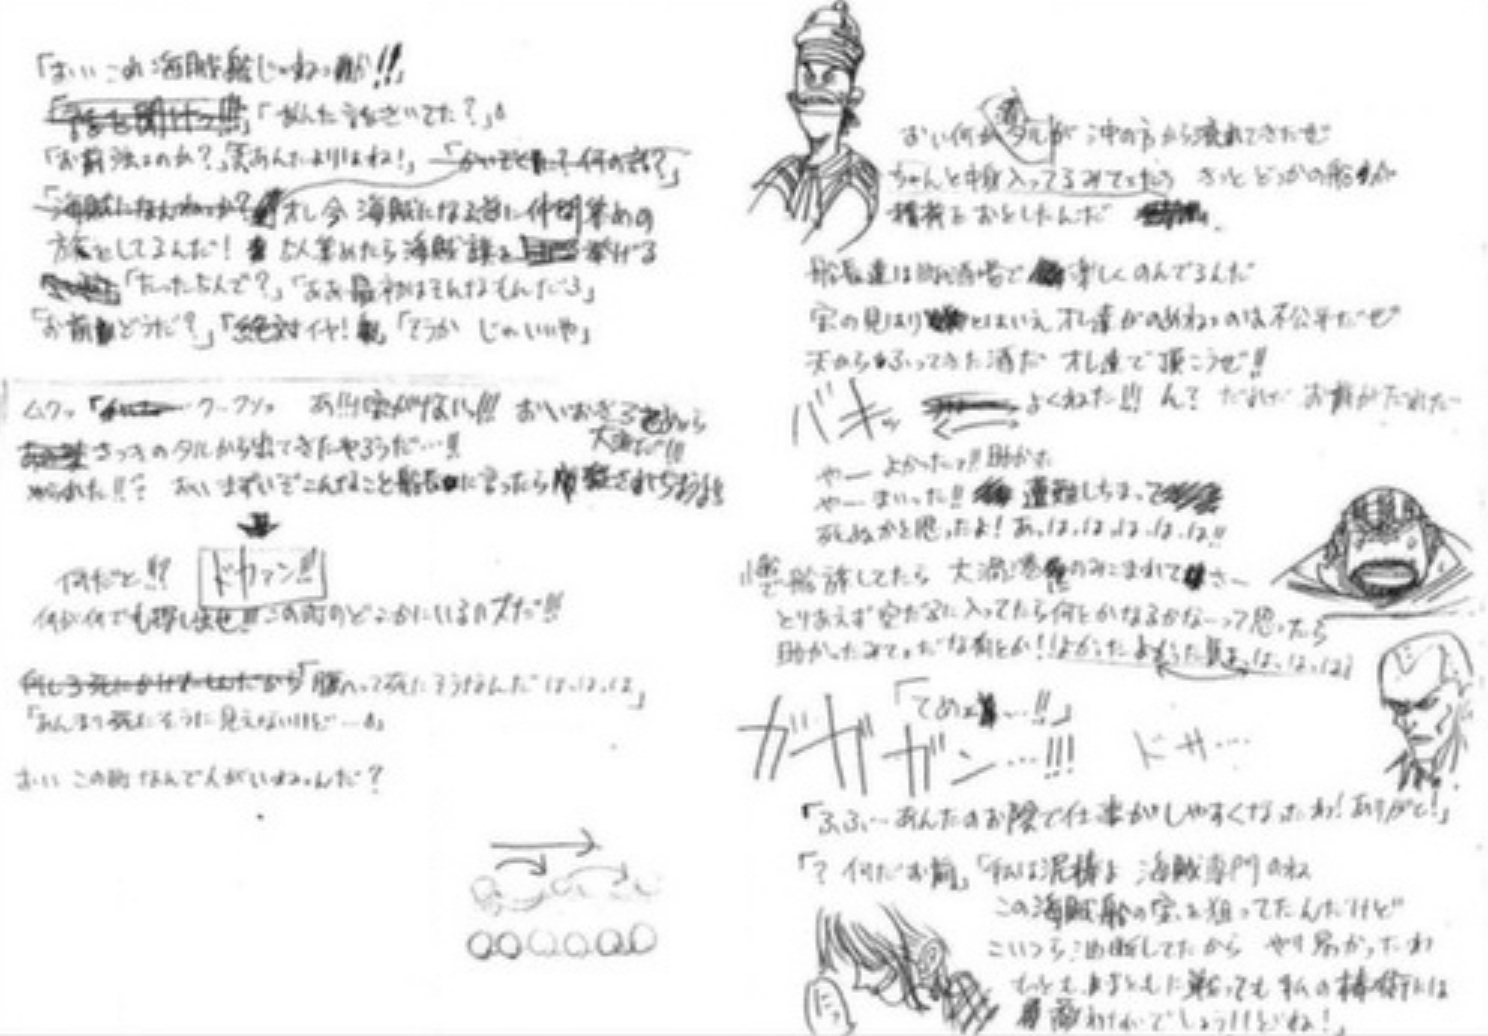 おい何かタルが沖の方から流れてきたぜ
ちゃんと中身入ってるみてェだぜ きっとどっかの船が
積荷をおとしたんだ
船長達は町の酒場で楽しくのんでるんだ
宝の見はりとはいえオレ達がのめねェのは不公平だぜ
天からふってきた酒だ オレ達で頂こうぜ!!
バキッ よくねた!!! ん? だれだ お前がだれだ
やー よかったっ!! 助かった
やー まいった!! 遭難しちまって
死ぬかと思ったよ! あっはっはっはっはっは!!
船話してたら 大渦巻にのみこまれてさー
とりあえず空ダルに入ってたら何とかなるかなーって思ったら
助かったみてェだな何とか!!よかったよかった
「てめェ…!!」
ガガガン…!!! ドサ…
「ふふ…あんたのお陰で仕事がしやすくなったわ!ありがと!」
「? 何だお前」「私は泥棒よ 海賊専門のね
この海賊船の宝を狙ってたんだけど
こいつら油断してたから やり易かったわ
もっとも まともに戦っても 私の棒術には
敵わないでしょうけどね!」
にっ
「おいこれ海賊船じゃねェか!!」
「話を聞けっ!!!」「あんた話きいてた?」
「お前強いのか?」「あんたよりはね!」「かいぞく? 何の話?」
オレ今 海賊になる為に仲間集めの
旅をしてるんだ! 5人集めたら海賊旗を挙げる
「たった5人で?」「ああ最初はそんなもんだろ」
「お前どうだ?」「絶対イヤ!」「そうか じゃいいや」
ムクッ あ!!!宝がないっ!!! おいおきろ
大変だ!!!
さっきのタルから出てきたやろうだ…!!
やられた!!? おい まずいぞこんなこと船長に言ったら殺されちまうよ
何だと!!? ドカァン!!!
何が何でも探し出せ!!! この町のどこかにいるハズだ!!!
何しろ死にかけたもんだから「腹へって死にそうなんだ はっはっは」
「あんまり死にそうに見えないけど…」
おい この町なんで人がいねェんだ?